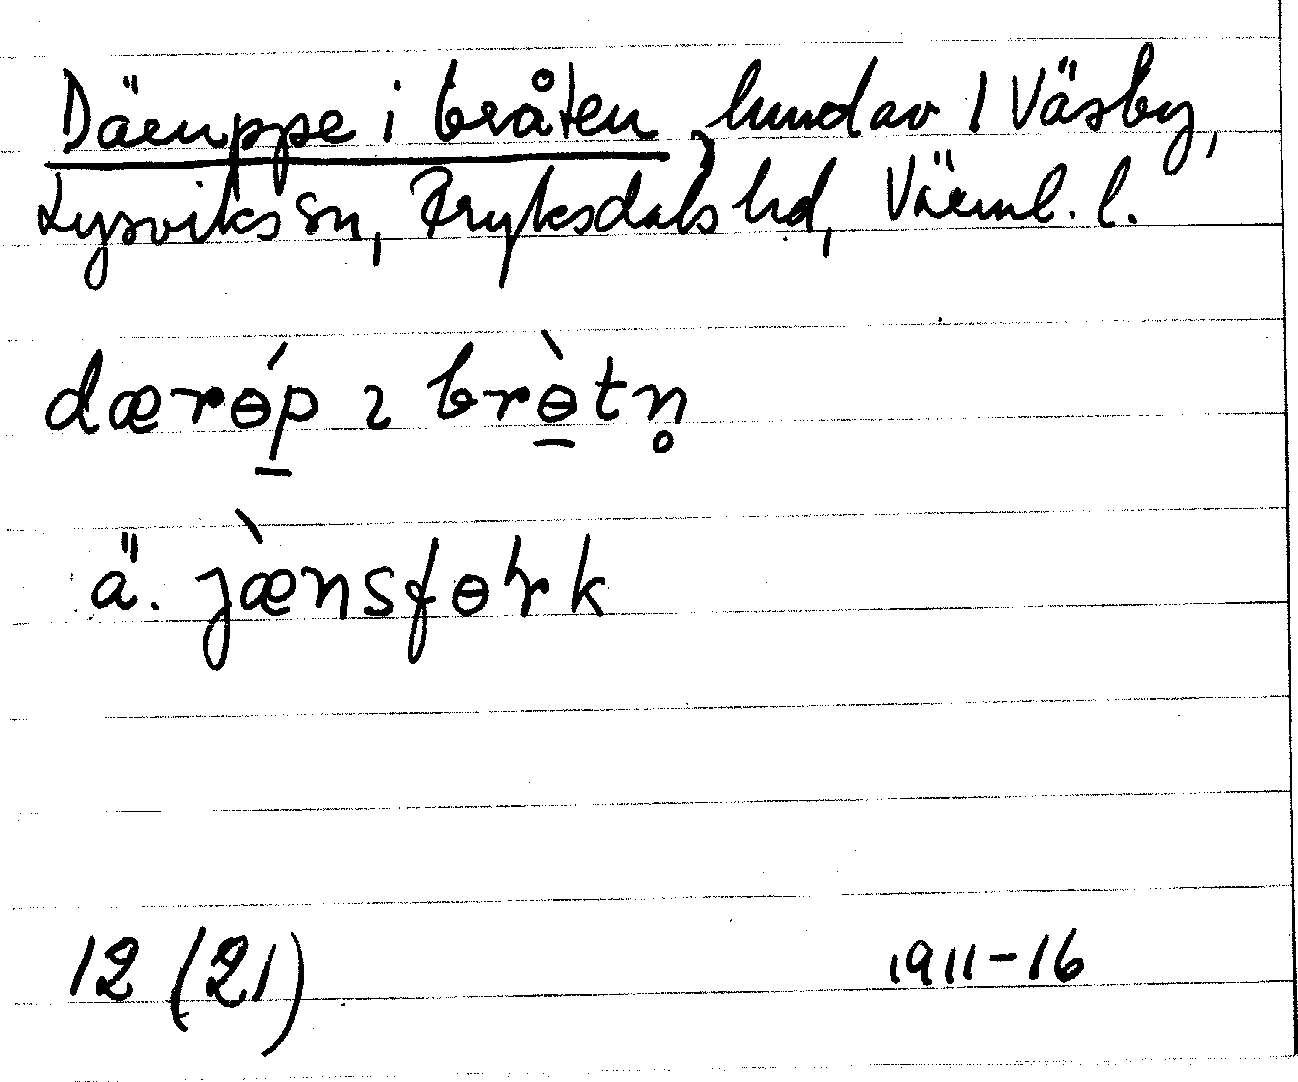 Däruppe i bråten, hmdav 1 Väsby,
Lysviks sn, Fryksdals hd, Värml. l.
dærɵ́p ɿ brɵ̀tn̥
ä. jæ̀nsfɵrk
12 (21) 1911-16